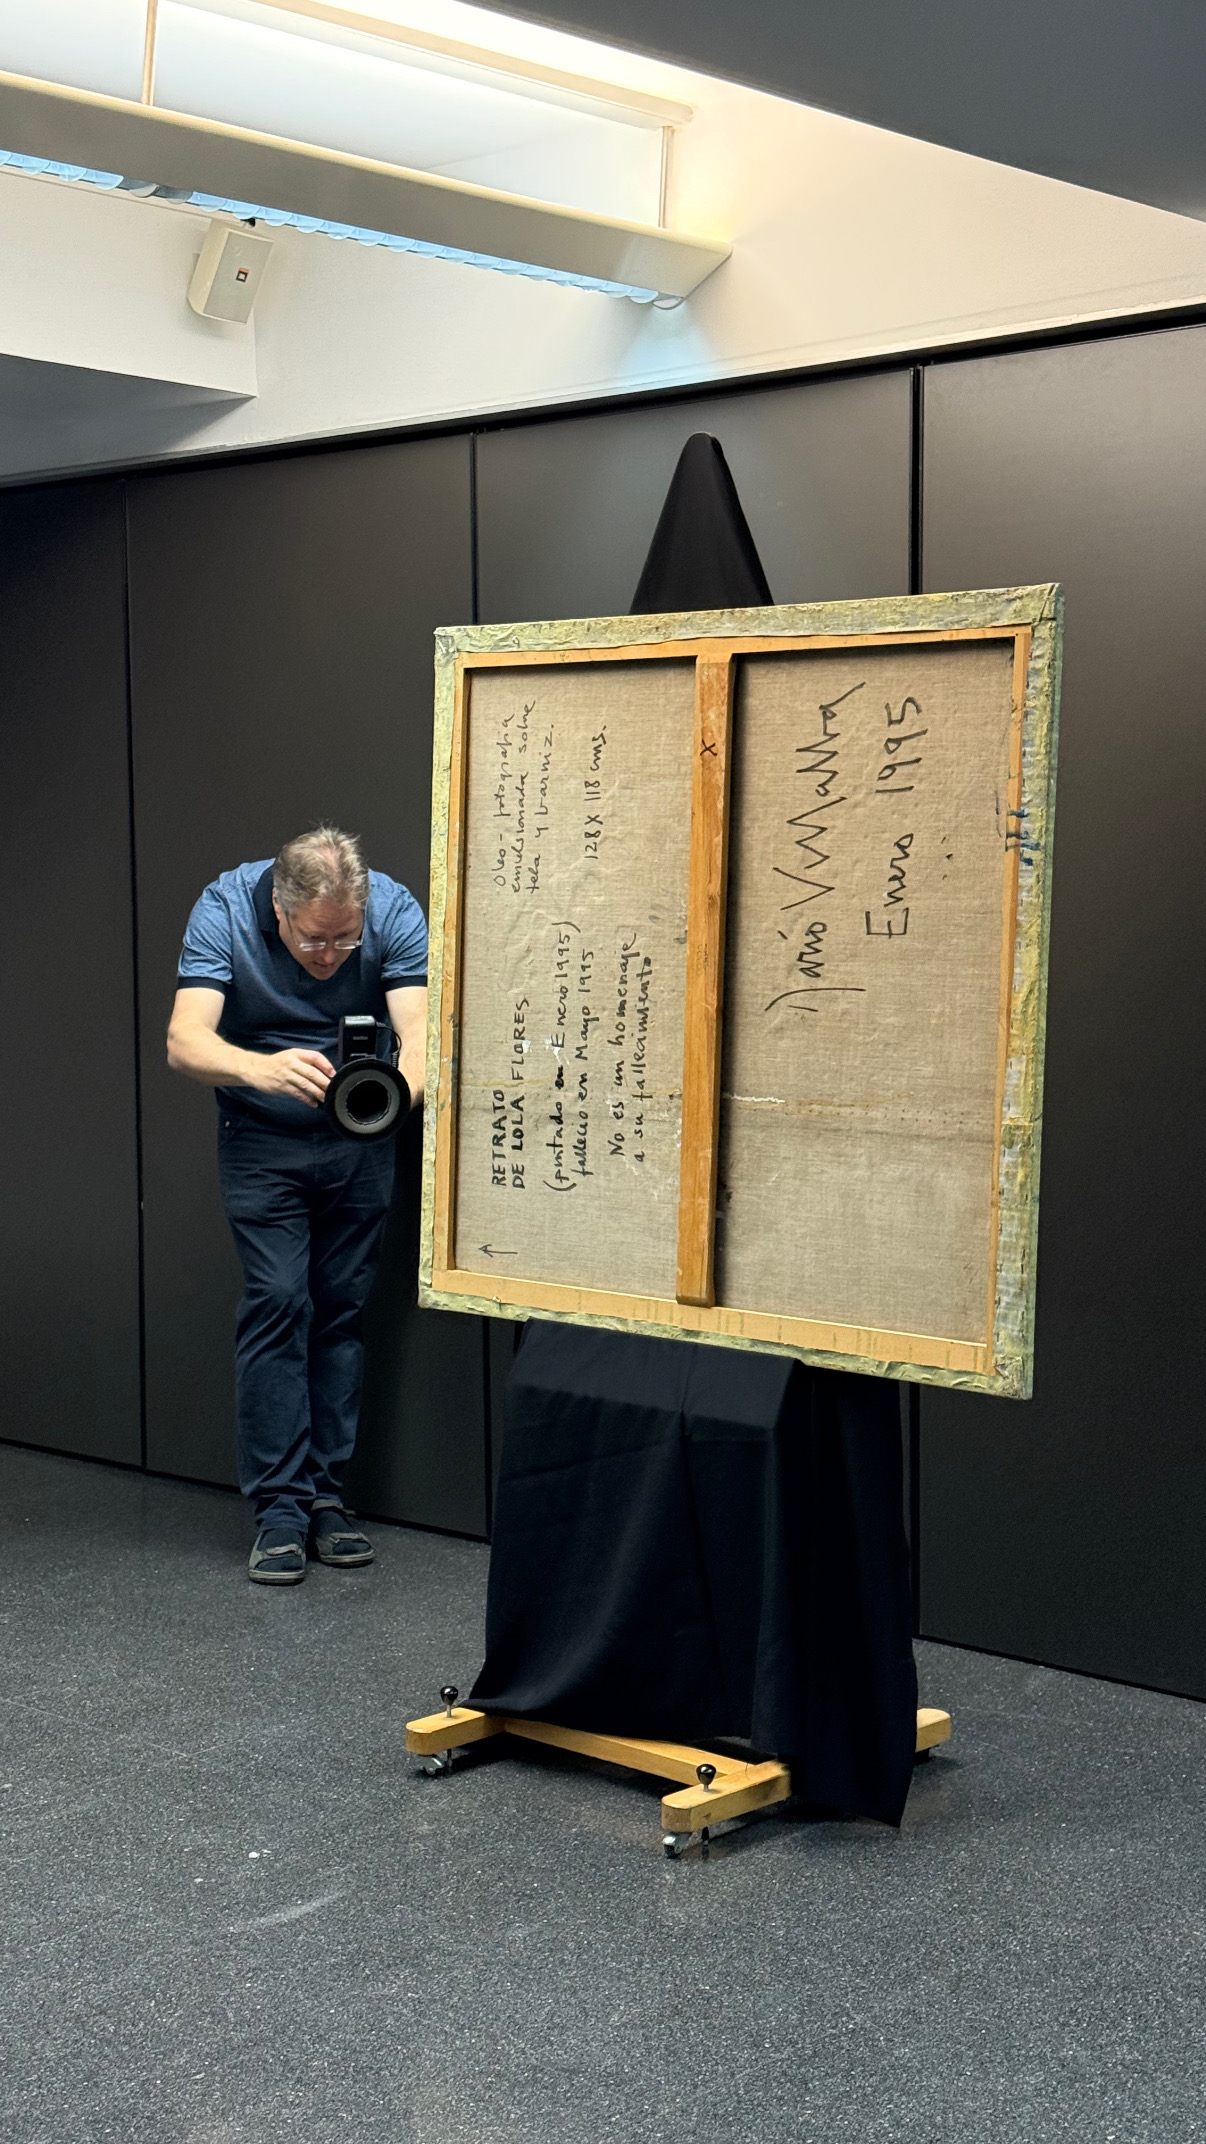 RETRATO
DE LOLA FLORES
(pintado en Enero 1995)
falleció en Mayo 1995
No es un homenaje
a su fallecimiento
Oleo - fotografia
emulsionada sobre
tela y barniz.
128 X 118 cms.
X
Darío Villalba
Enero 1995